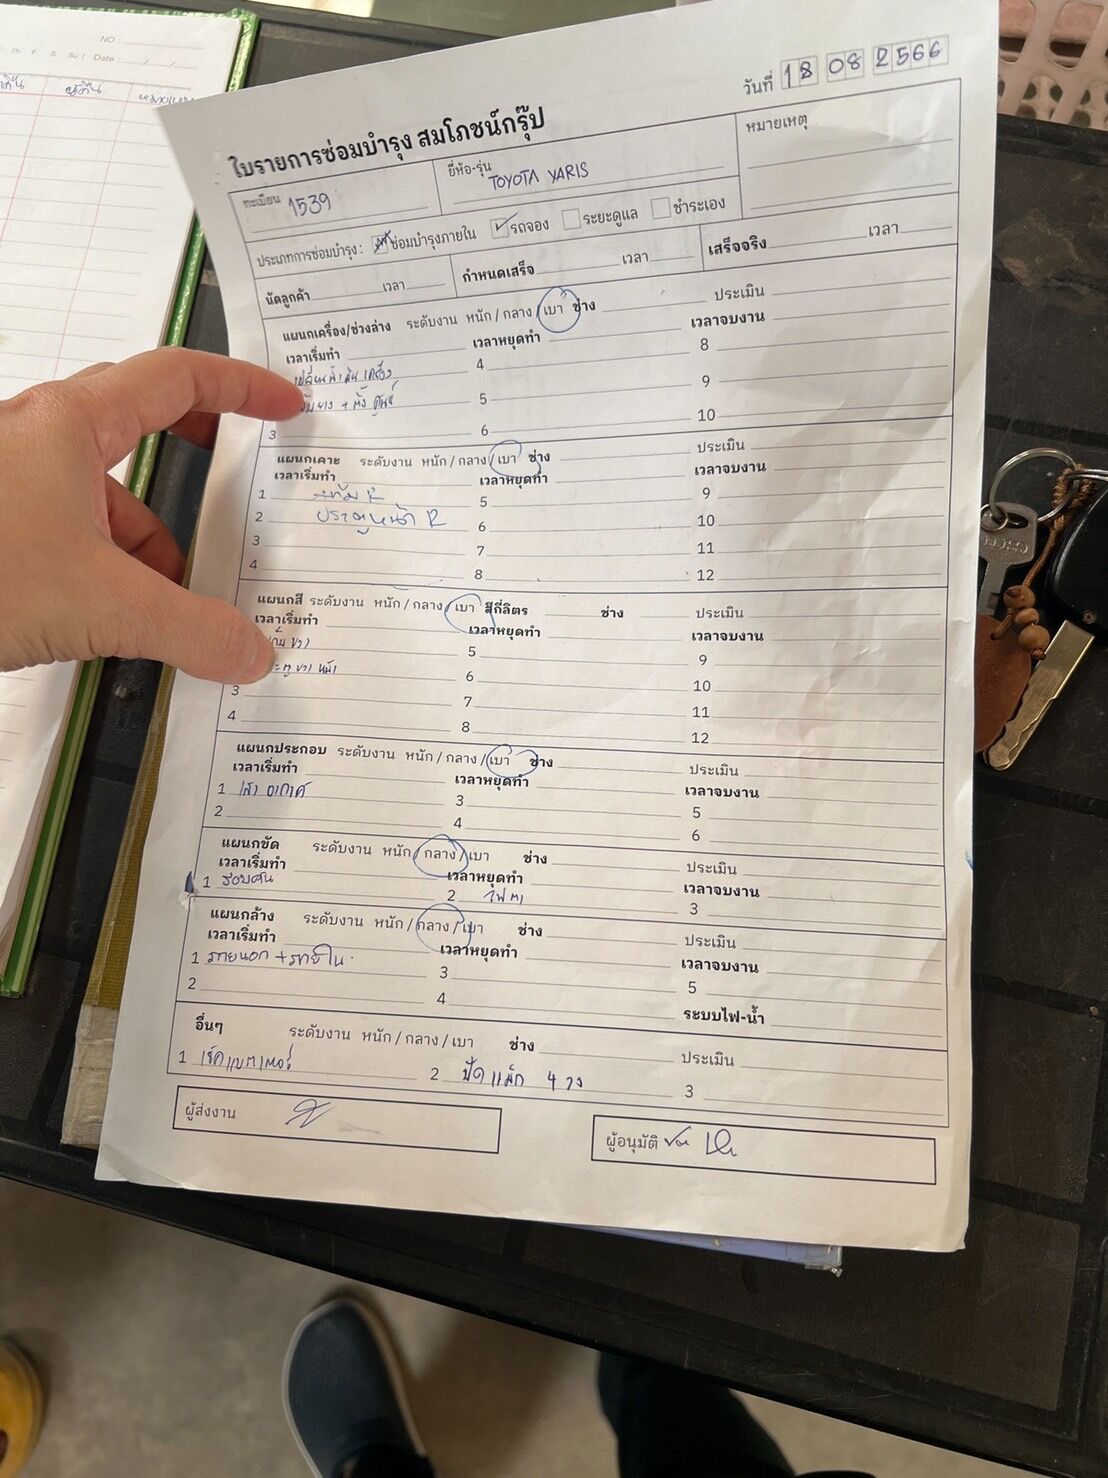 NO :
Th F S Su / Date : / /
ผู้คืน
วันที่ 18 08 2566
ใบรายการซ่อมบำรุง สมโภชน์กรุ๊ป
ทะเบียน 1539
ยี่ห้อ-รุ่น TOYOTA YARIS
หมายเหตุ
ประเภทการซ่อมบำรุง: ซ่อมบำรุงภายใน รถจอง ระยะดูแล ชำระเอง
นัดลูกค้า เวลา กำหนดเสร็จ เวลา เสร็จจริง เวลา
แผนกเครื่อง/ช่วงล่าง ระดับงาน หนัก/กลาง/เบา ช่าง ประเมิน
เวลาเริ่มทำ เวลาหยุดทำ เวลาจบงาน
เปลี่ยนน้ำมันเครื่อง 4 8
ยาง + ตั้งศูนย์ 5 9
3 6 10
แผนกเคาะ ระดับงาน หนัก/กลาง/เบา ช่าง ประเมิน
เวลาเริ่มทำ เวลาหยุดทำ เวลาจบงาน
1 แก้ม R 5 9
2 ประตูหน้า R 6 10
3 7 11
4 8 12
แผนกสี ระดับงาน หนัก/กลาง/เบา สีกี่ลิตร ช่าง ประเมิน
เวลาเริ่มทำ เวลาหยุดทำ เวลาจบงาน
ขวา 5 9
ขวา หน้า 6 10
3 7 11
4 8 12
แผนกประกอบ ระดับงาน หนัก/กลาง/เบา ช่าง ประเมิน
เวลาเริ่มทำ เวลาหยุดทำ เวลาจบงาน
1 เสาอากาศ 3 5
2 4 6
แผนกขัด ระดับงาน หนัก/กลาง/เบา ช่าง ประเมิน
เวลาเริ่มทำ เวลาหยุดทำ เวลาจบงาน
1 รอบคัน 2 ไฟตา 3
แผนกล้าง ระดับงาน หนัก/กลาง/เบา ช่าง ประเมิน
เวลาเริ่มทำ เวลาหยุดทำ เวลาจบงาน
1 ภายนอก + ภายใน 3 5
2 4 ระบบไฟ-น้ำ
อื่นๆ ระดับงาน หนัก/กลาง/เบา ช่าง ประเมิน
1 เช็คแบตเตอรี่ 2 ปัดแม็ก 4 วง 3
ผู้ส่งงาน
ผู้อนุมัติ